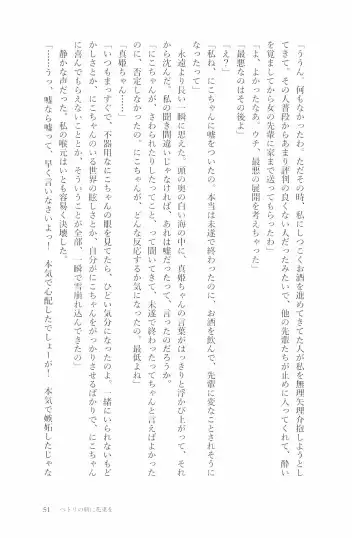 「ううん、何もなかったわ。ただその時、私にしつこくお酒を進めてきてた人が私を無理矢理介抱しようとし
てきて。その人普段からあまり評判の良くない人だったみたいで、他の先輩たちが止めに入ってくれて、酔い
を覚ましてから女の先輩に家まで送ってもらったわ」
「よ、よかったなあ。ウチ、最悪の展開を考えちゃった」
「最悪なのはその後よ」
「え?」
「私ね、にこちゃんに嘘をついたの。本当は未遂で終わったのに、お酒を飲んで、先輩に変なことされそうに
なったって」
　永遠より長い一瞬に思えた。頭の奥の白い海の中に、真姫ちゃんの言葉がはっきりと浮かび上がって、それ
から沈んだ。私の聞き間違いじゃなければ、あれは嘘だったって、言ったのだろうか。
「にこちゃんが、さわられたりしたってこと、って聞いてきて、未遂で終わったってちゃんと言えばよかった
のに、否定しなかったの。にこちゃんが、どんな反応するか気になったの。最低よね」
「真姫ちゃん……」
「いつもまっすぐで、不器用なにこちゃんの眼を見てたら、ひどい気分になったのよ。一緒にいられないもど
かしさとか、にこちゃんのいる世界の眩しさとか、自分がにこちゃんをがっかりさせるばかりで、にこちゃん
に喜んでもらえないこととか、そういうことが全部、一瞬で雪崩れ込んできたの」
　静かな声だった。私の喉元はいとも容易く決壊した。
「……うっ、嘘なら嘘って、早く言いなさいよっ!　本気で心配したでしょーが!　本気で嫉妬したじゃな
51